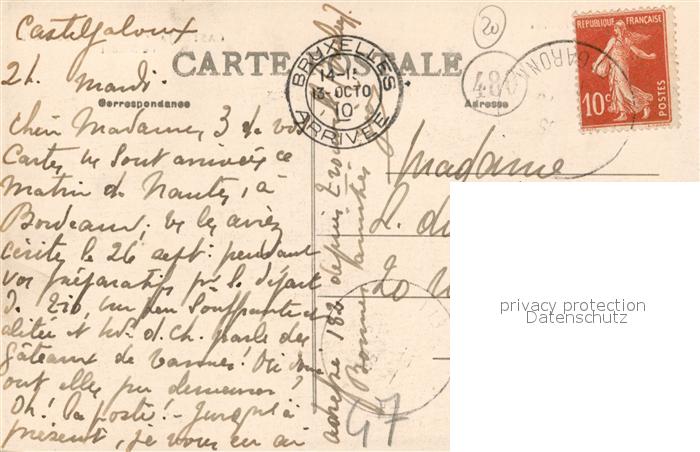 Casteljaloux
2h. Mardi.
CARTE POSTALE
Correspondance
Adresse
BRUXELLES
13-OCTO
10
ARRIVEE
20
480
GARONNE
REPUBLIQUE FRANÇAISE
10c
POSTES
Chère Madame, 3 de vos
Cartes me sont arrivées ce
Matin de Nantes, à
Bordeaux; vs les aviez
écrites le 26 sept: pendant
vos préparatifs pr le départ
un peu souffrante et
alitée et parle des
gâteaux de Vannes! Où donc
ont elles pu demeurer?
Oh! la poste! - Jusqu'à
présent, je vous en ai
adressé 182 depuis
Bonnes amitiés
Madame
L. de
20
47
privacy protection
Datenschutz